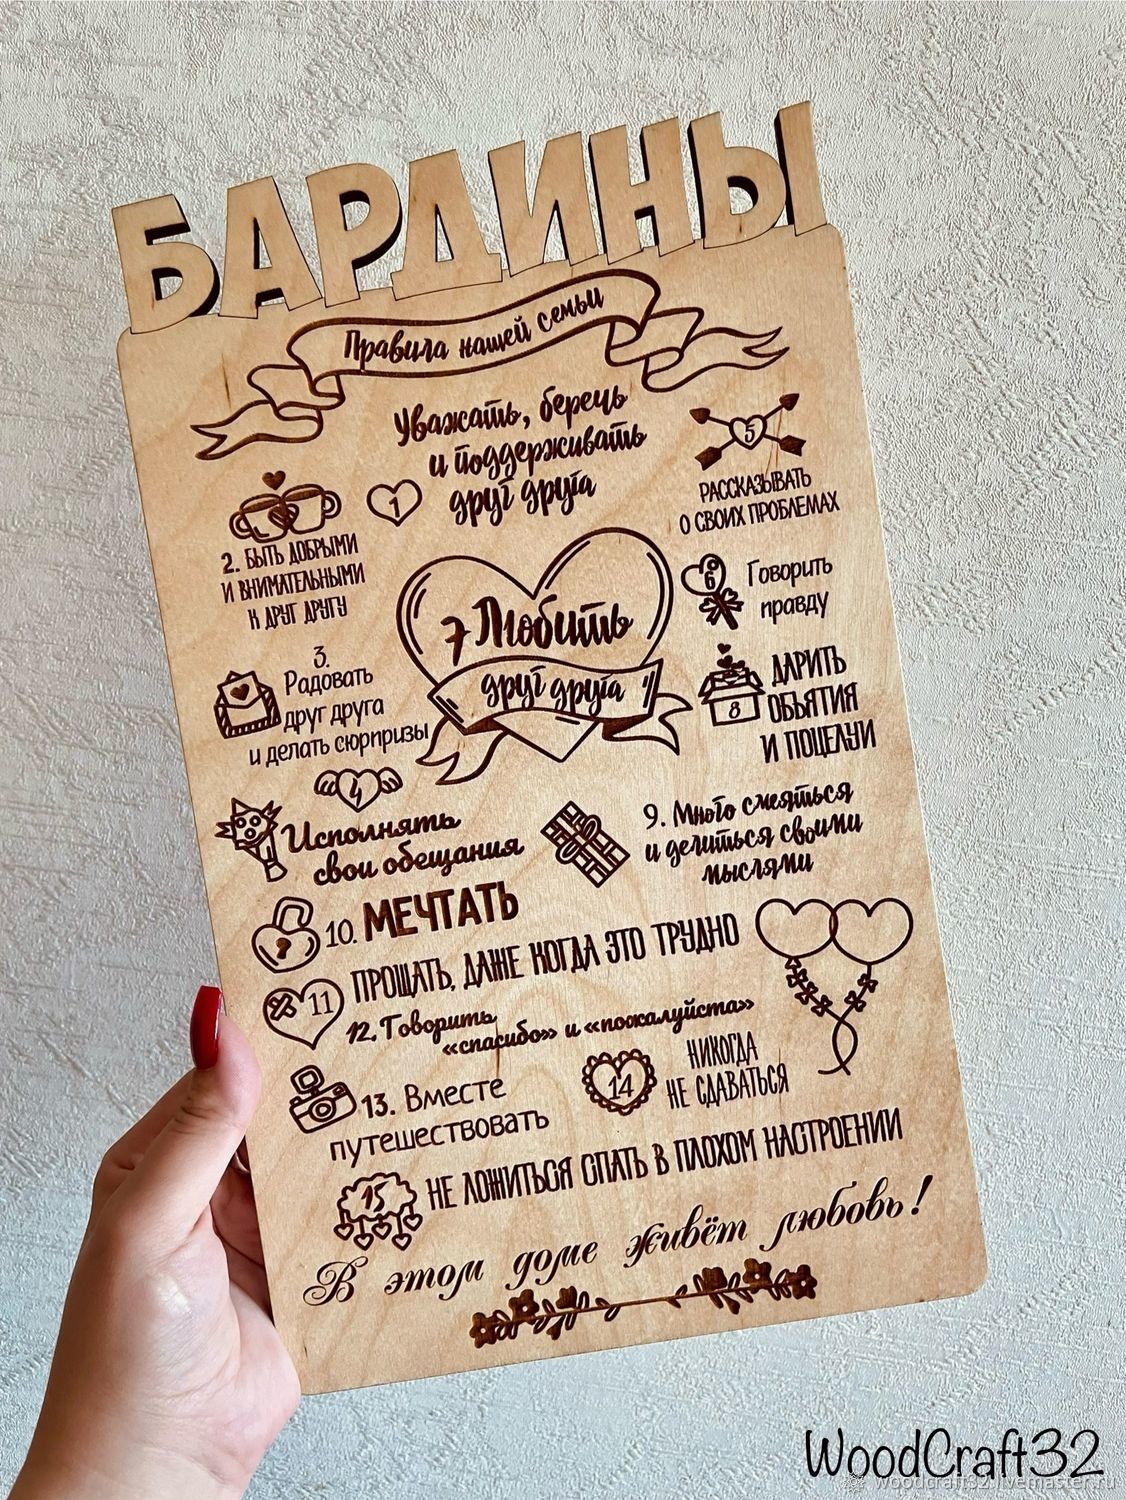 БАРДИНЫ
Правила нашей семьи
1
Уважать, беречь
и поддерживать
друг друга
2. БЫТЬ ДОБРЫМИ
И ВНИМАТЕЛЬНЫМИ
К ДРУГ ДРУГУ
3.
Радовать
друг друга
и делать сюрпризы
4
Исполнять
свои обещания
5
РАССКАЗЫВАТЬ
О СВОИХ ПРОБЛЕМАХ
6
Говорить
правду
7 Любить
друг друга
8
ДАРИТЬ
ОБЪЯТИЯ
И ПОЦЕЛУИ
9. Много смеяться
и делиться своими
мыслями
10. МЕЧТАТЬ
11 ПРОЩАТЬ, ДАЖЕ КОГДА ЭТО ТРУДНО
12. Говорить
«спасибо» и «пожалуйста»
13. Вместе
путешествовать
14
НИКОГДА
НЕ СДАВАТЬСЯ
15 НЕ ЛОЖИТЬСЯ СПАТЬ В ПЛОХОМ НАСТРОЕНИИ
В этом доме живёт любовь!
WoodCraft32
woodcraft32.livemaster.ru